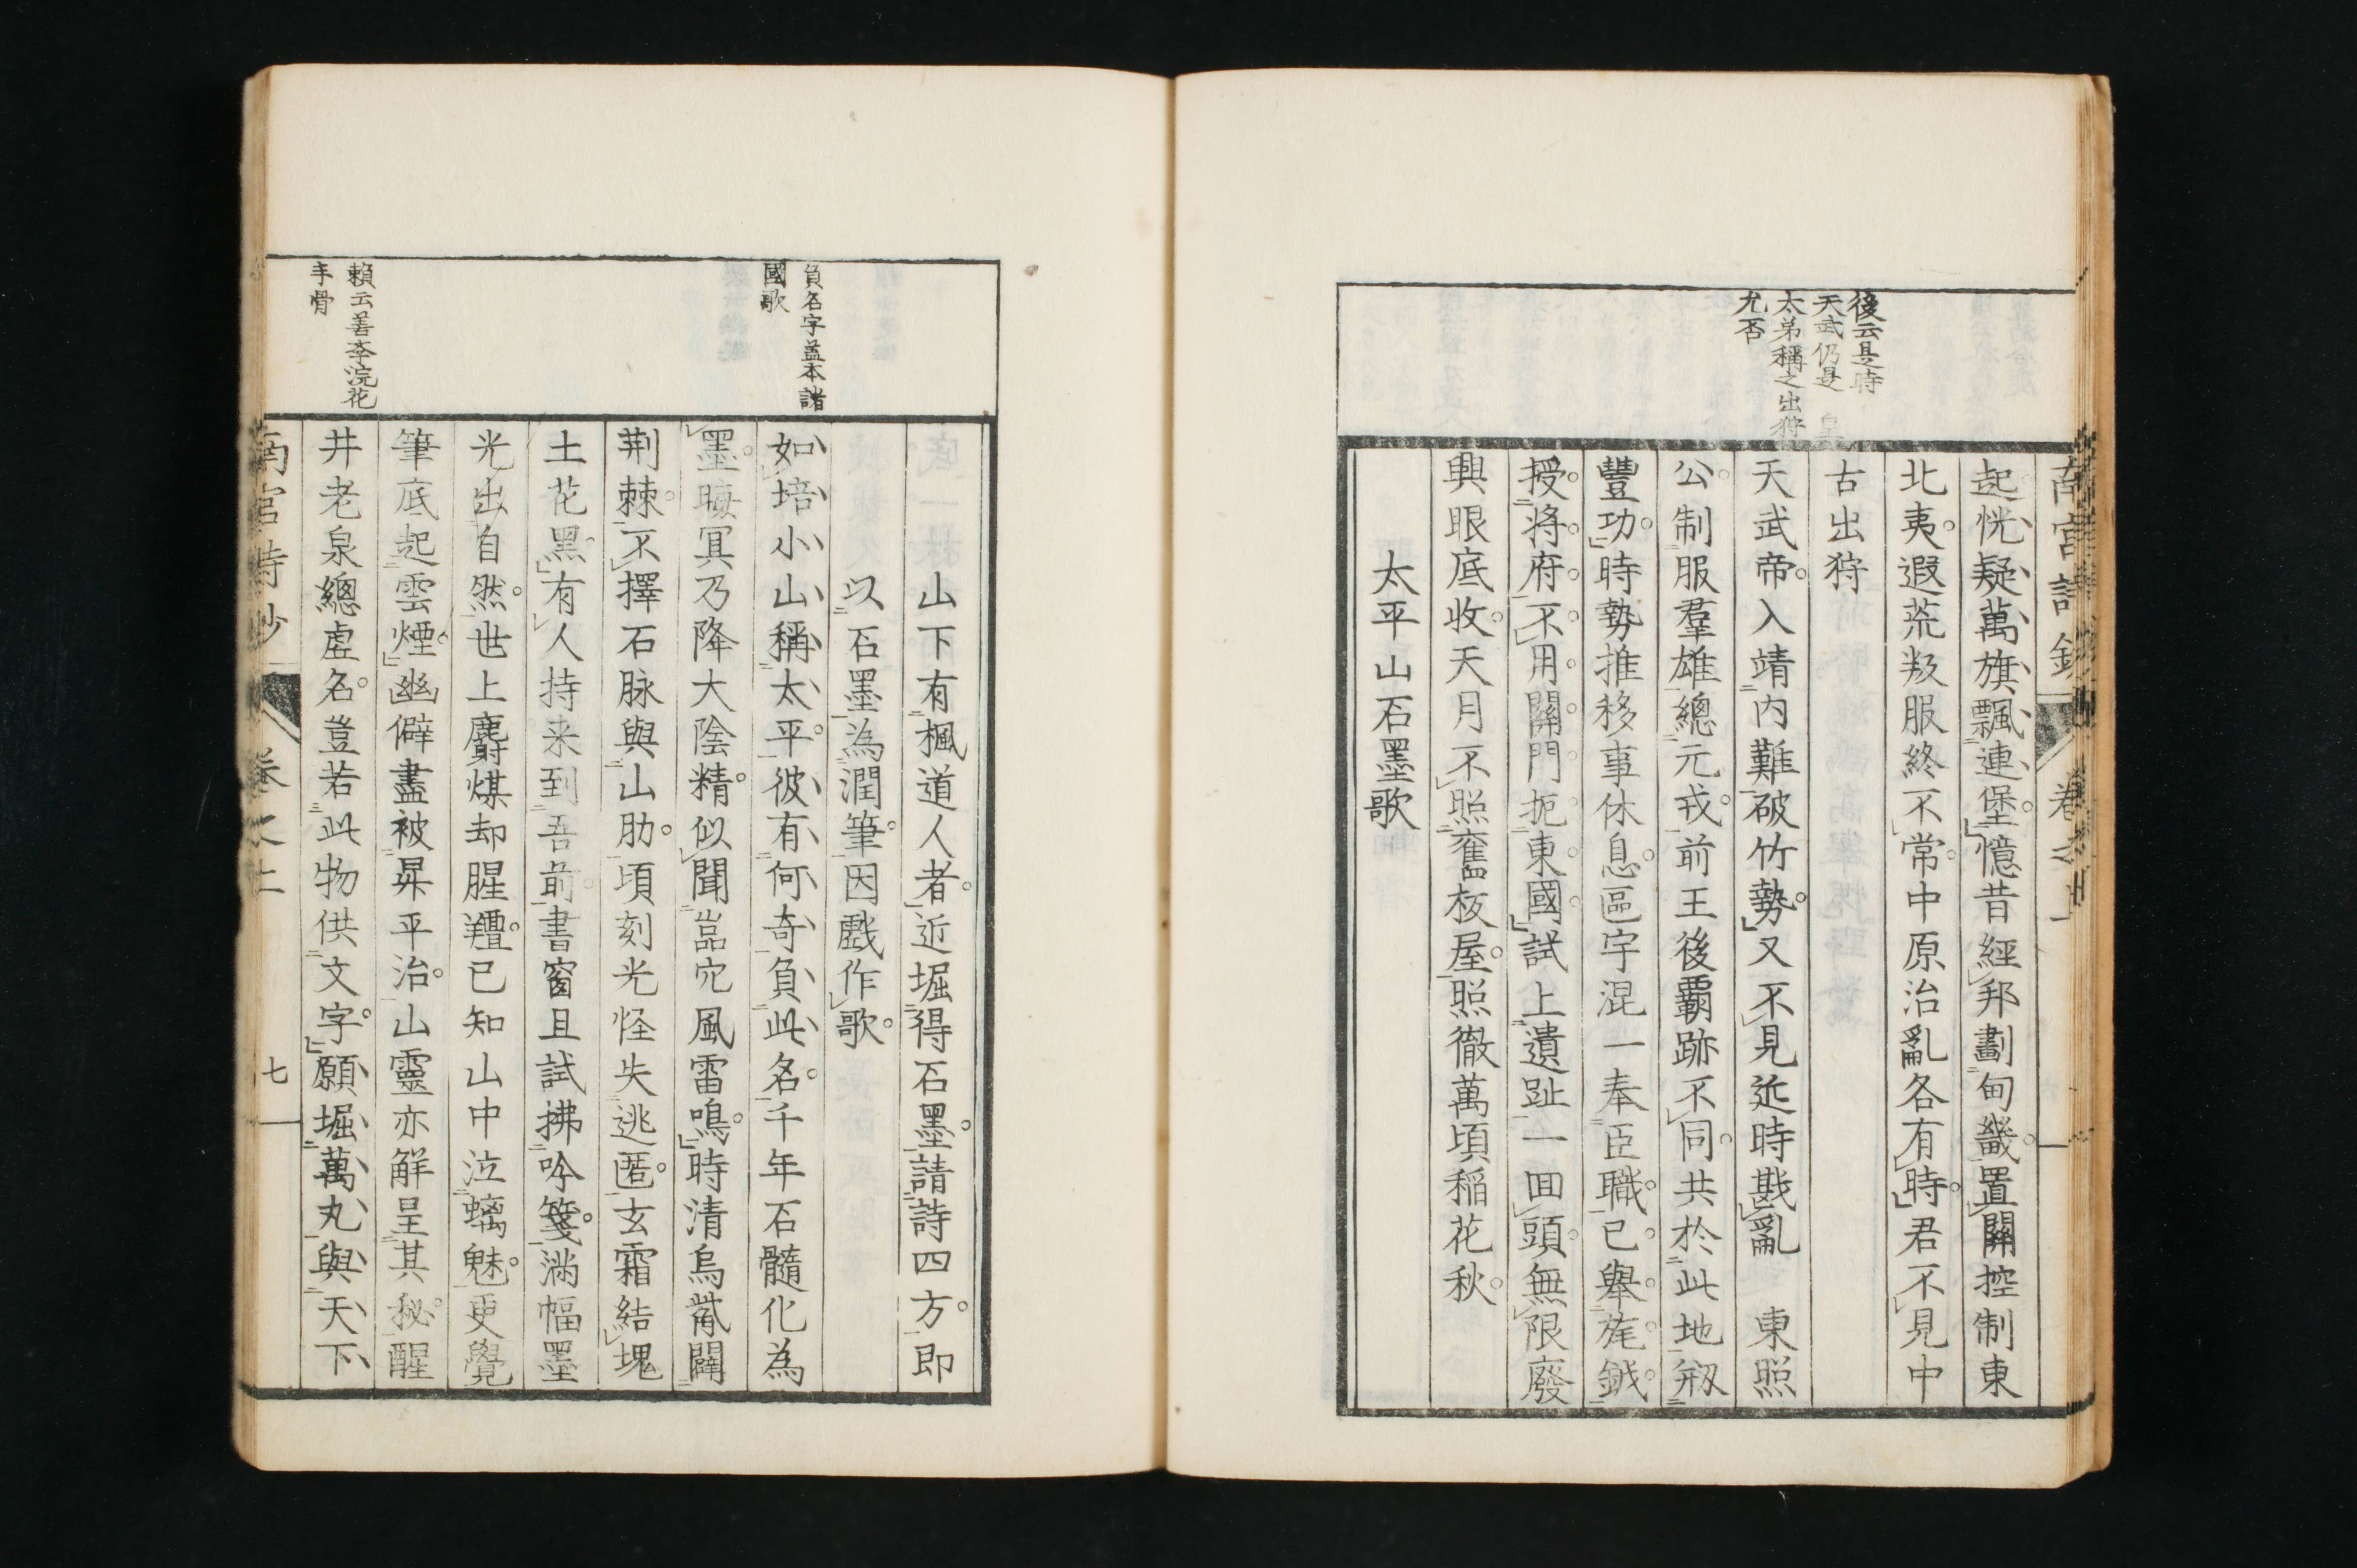 後云是時
天武仍是 皇
太弟稱之出狩
允否
起恍疑萬旗飄連堡憶昔經邦劃甸畿置關控制東
北夷遐荒叛服終不常中原治亂各有時君不見中
古出狩
天武帝入靖内難破竹勢又不見近時戡亂 東照
公制服羣雄總元戎前王後覇跡不同共於此地剏
豐功時勢推移事休息區宇混一奉臣職已舉旄鉞
授將府不用關門扼東國試上遺趾一回頭無限廢
興眼底收天月不照舊板屋照徹萬頃稲花秋
太平山石墨歌
負名字益本諸
國歌
賴云善李浣花
手骨
山下有楓道人者近堀得石墨請詩四方即
以石墨為潤筆因戲作歌
如培小山稱太平彼有何奇負此名千年石髓化為
墨晦冥乃降大陰精似聞嵓穴風雷鳴時清烏黹闢
荆棘不擇石脉與山肋頃刻光怪失逃匿玄霜結塊
土花黑有人持来到吾前書窗且試拂吟箋滿幅墨
光出自然世上麝煤却腥羶已知山中泣螭魅更覺
筆底起雲煙幽僻盡被昇平治山靈亦解呈其秘醒
井老泉總虚名豈若此物供文字願堀萬丸與天下
南宮詩鈔 卷之上 七